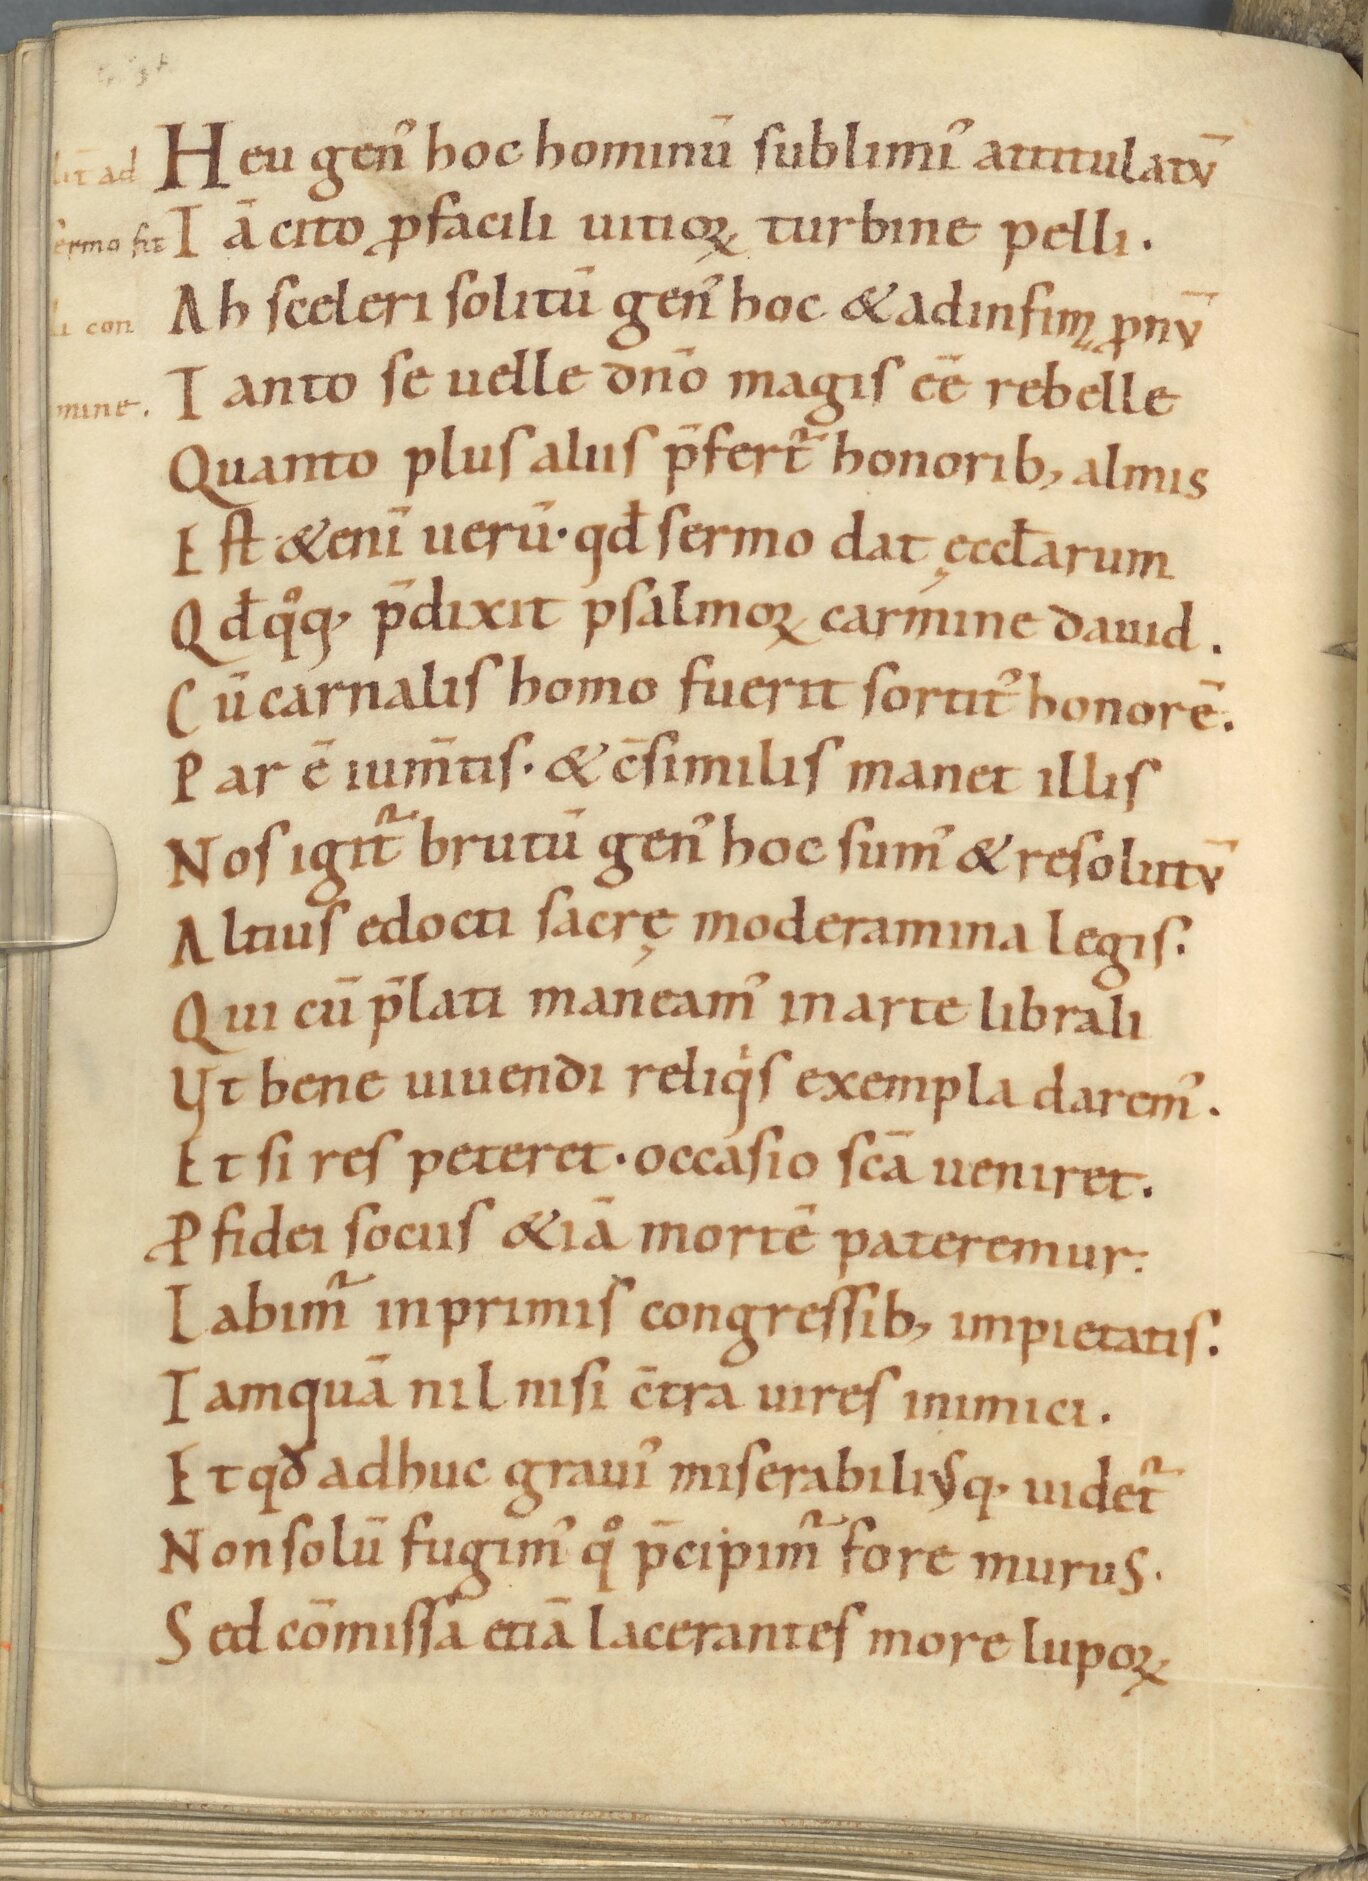 lit̄ ad
Heu gen᾿ hoc hominū sublimi᾿ attitulatv̄
ermo fit
Iā cito ꝓfacili uitioꝝ turbine pelli.
Ah sceleri solitū gen᾿ hoc & adinfimꝝ ꝓnv̄
li con
Tanto se uelle dnō magis eē rebelle
mine.
Quanto plus aliis p̄fert᷑ honorib, almis
Est &enī uerū· qđ sermo dat ęccłarum
Qđqͦq· p̄dixit psalmoꝝ carmine dauid.
Cū carnalis homo fuerit sortit᾿ honorē.
Par ē ium̄tis· & c̄similis manet illis
Nos igit᷑ brutū gen᾿ hoc sum᾿ & resolutv̄
Altius edocti sacrę moderamina legis.
Qui cū p̄lati maneam᾿ in arte librali
Vt bene uiuendi reliqͥs exempla darem᾿.
Et si res peteret· occasio scā ueniret.
Ꝓ fidei sociis &iā mortē pateremur:
Labim᷑ inprimis congressib, impietatis.
Tamquā nil nisi c̄tra uires inimici.
Et qđ adhuc graui᾿ miserabilivsq· uidet᷑
Non solū fugim᾿ qͦ p̄cipim᷑ fore murus.
Sed cōmissa etiā lacerantes more lupoꝝ